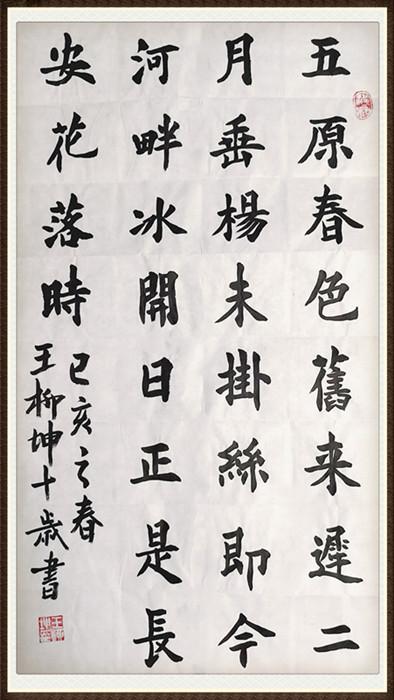 五原春色舊来遲二
月垂楊未掛絲即今
河畔冰開日正是長
安花落時
己亥之春
王柳坤十歲書